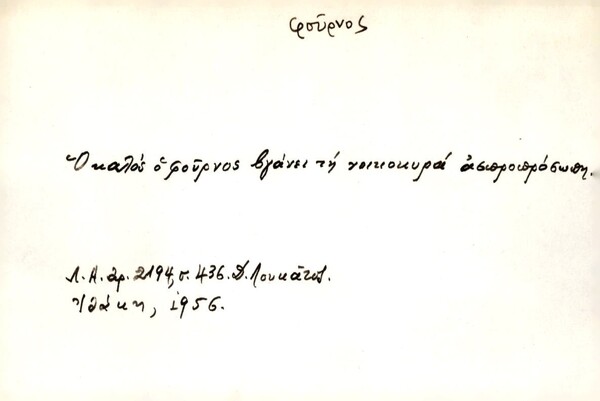 φοῦρνος
Ὁ καλός ὁ φοῦρνος βγάνει τή νοικοκυρά ἀσπροπρόσωπη.
Λ. Α. ἀρ. 2194, σ. 436. Δ. Λουκᾶτος.
Ἰθάκη, 1956.